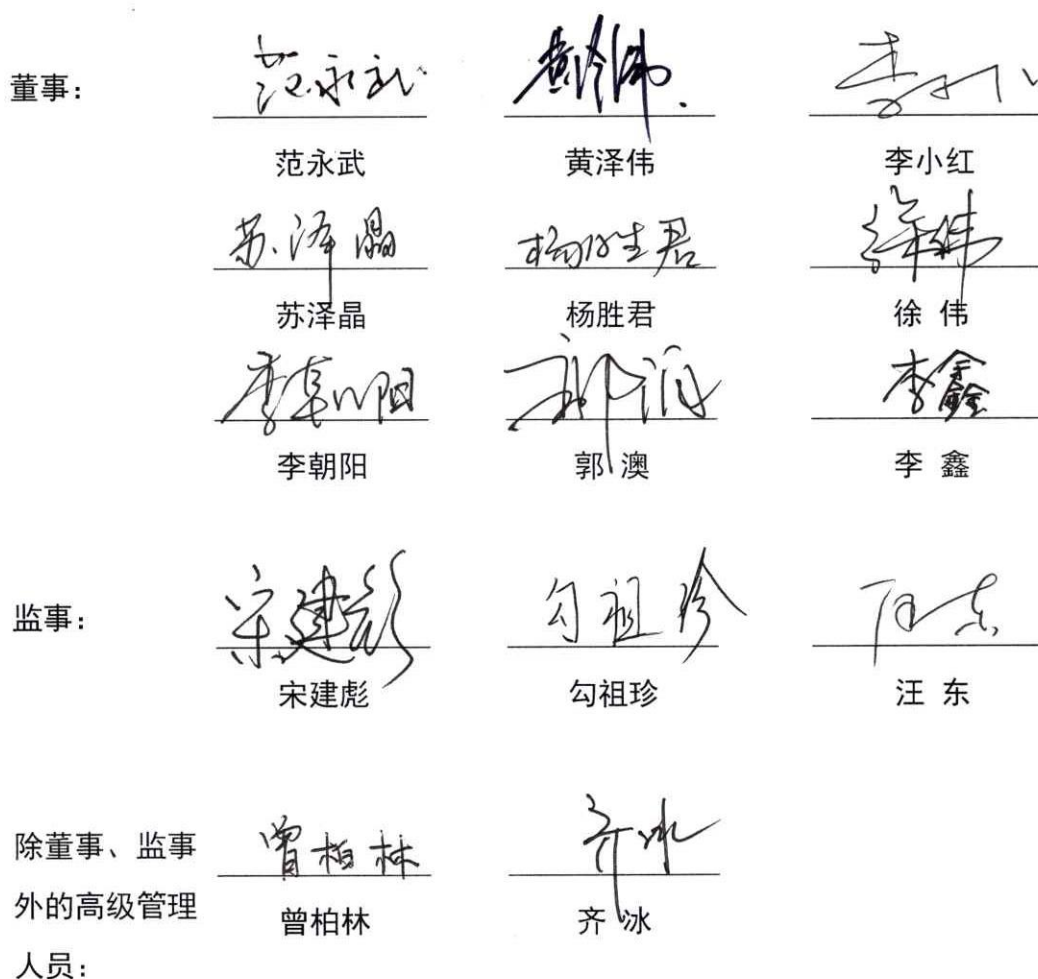 董事：
范永武 黄泽伟 李
范永武 黄泽伟 李小红
苏泽晶 杨胜君 徐伟
苏泽晶 杨胜君 徐 伟
李朝阳 郭澳 李鑫
李朝阳 郭 澳 李 鑫
监事：
宋建彪 勾祖珍 汪东
宋建彪 勾祖珍 汪 东
除董事、监事
曾柏林 齐冰
外的高级管理
曾柏林 齐 冰
人员：